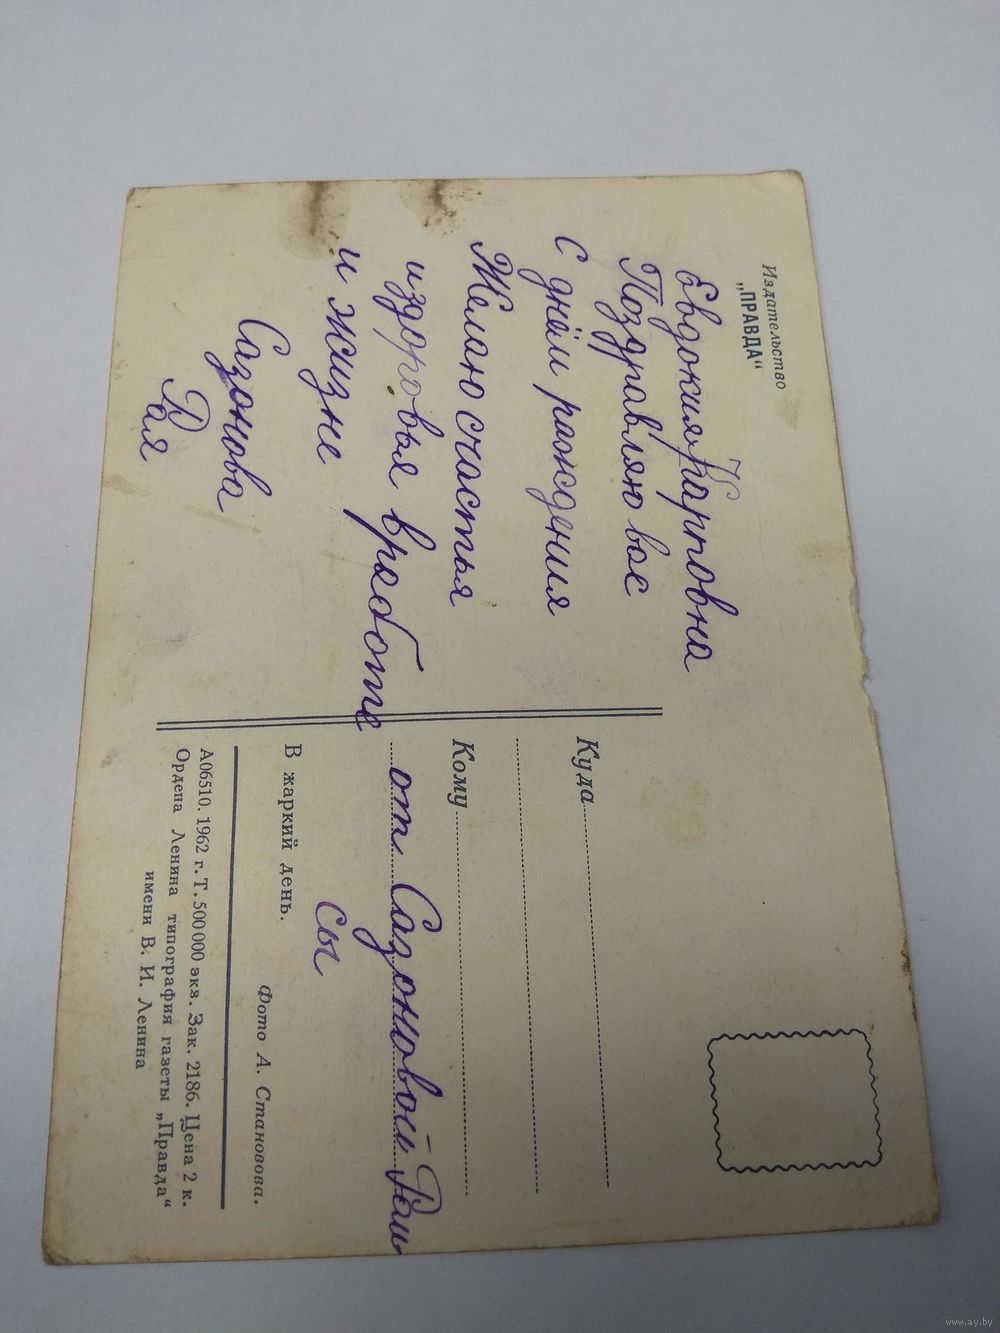 Издательство
„ПРАВДА“
Евдокия Карповна
Поздравляю вас
С днём рождения
Желаю счастья
издоровья вработе
и жизне
Сазонова
Рая
Куда
Кому
от Сазоновой Раи
сы
В жаркий день.
Фото А. Становова.
А06510. 1962 г. Т. 500 000 экз. Зак. 2186. Цена 2 к.
Ордена Ленина типография газеты „Правда“
имени В. И. Ленина
www.ay.by